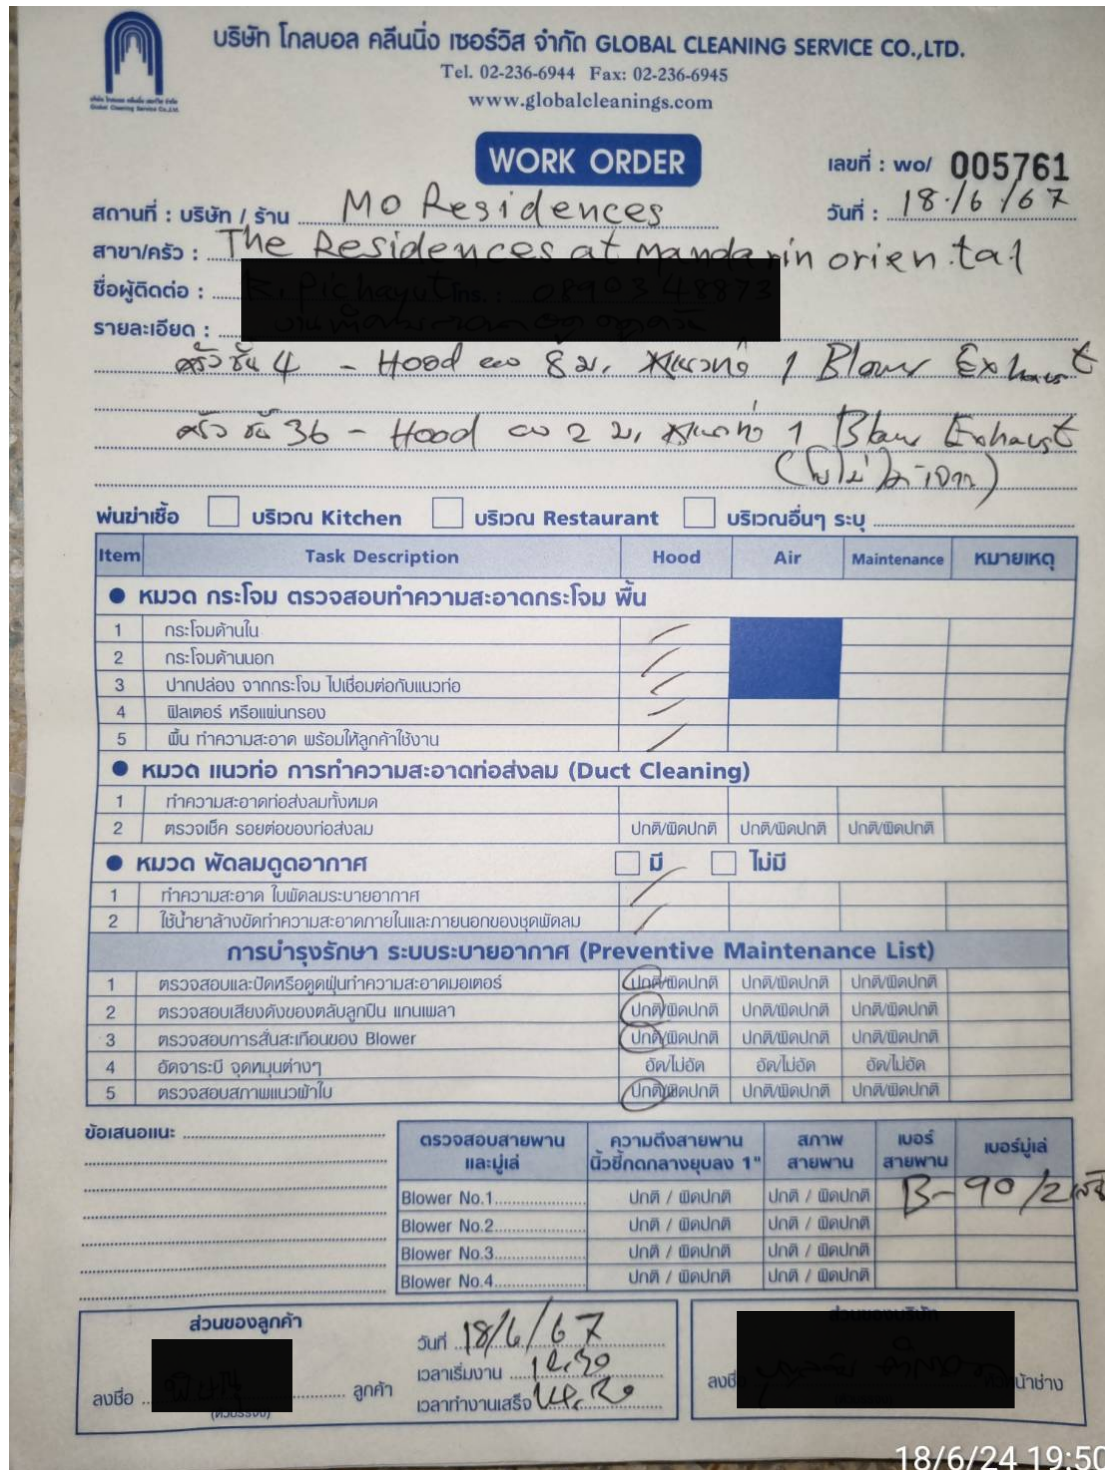 บริษัท โกลบอล คลีนนิ่ง เซอร์วิส จำกัด GLOBAL CLEANING SERVICE CO.,LTD.
Tel. 02-236-6944 Fax: 02-236-6945
www.globalcleanings.com
บริษัท โกลบอล คลีนนิ่ง เซอร์วิส จำกัด
Global Cleaning Service Co.,Ltd.
WORK ORDER
เลขที่ : wo/ 005761
สถานที่ : บริษัท / ร้าน MO Residences วันที่ : 18/6/67
สาขา/ครัว : The Residences at mandarin orien.tal
ชื่อผู้ติดต่อ :
รายละเอียด :
ครัวชั้น 4 - Hood 8 ม. 1 Blower Exhaust
ครัวชั้น 36 - Hood 2 ม. 1 Blower Exhaust
พ่นฆ่าเชื้อ บริเวณ Kitchen บริเวณ Restaurant บริเวณอื่นๆ ระบุ
Item Task Description Hood Air Maintenance หมายเหตุ
● หมวด กระโจม ตรวจสอบทำความสะอาดกระโจม พื้น
1 กระโจมด้านใน /
2 กระโจมด้านนอก /
3 ปากปล่อง จากกระโจม ไปเชื่อมต่อกับแนวท่อ /
4 ฟิลเตอร์ หรือแผ่นกรอง /
5 พื้น ทำความสะอาด พร้อมให้ลูกค้าใช้งาน /
● หมวด แนวท่อ การทำความสะอาดท่อส่งลม (Duct Cleaning)
1 ทำความสะอาดท่อส่งลมทั้งหมด
2 ตรวจเช็ค รอยต่อของท่อส่งลม ปกติ/ผิดปกติ ปกติ/ผิดปกติ ปกติ/ผิดปกติ
● หมวด พัดลมดูดอากาศ มี ไม่มี
1 ทำความสะอาด ใบพัดลมระบายอากาศ /
2 ใช้น้ำยาล้างขัดทำความสะอาดภายในและภายนอกของชุดพัดลม /
การบำรุงรักษา ระบบระบายอากาศ (Preventive Maintenance List)
1 ตรวจสอบและปัดหรือดูดฝุ่นทำความสะอาดมอเตอร์ ปกติ/ผิดปกติ ปกติ/ผิดปกติ ปกติ/ผิดปกติ
2 ตรวจสอบเสียงดังของตลับลูกปืน แกนเพลา ปกติ/ผิดปกติ ปกติ/ผิดปกติ ปกติ/ผิดปกติ
3 ตรวจสอบการสั่นสะเทือนของ Blower ปกติ/ผิดปกติ ปกติ/ผิดปกติ ปกติ/ผิดปกติ
4 อัดจาระบี จุดหมุนต่างๆ อัด/ไม่อัด อัด/ไม่อัด อัด/ไม่อัด
5 ตรวจสอบสภาพแนวผ้าใบ ปกติ/ผิดปกติ ปกติ/ผิดปกติ ปกติ/ผิดปกติ
ข้อเสนอแนะ
ตรวจสอบสายพานและมู่เล่ ความตึงสายพาน นิ้วชี้กดกลางยุบลง 1" สภาพสายพาน เบอร์สายพาน เบอร์มู่เล่
Blower No.1 ปกติ / ผิดปกติ ปกติ / ผิดปกติ B-90/2
Blower No.2 ปกติ / ผิดปกติ ปกติ / ผิดปกติ
Blower No.3 ปกติ / ผิดปกติ ปกติ / ผิดปกติ
Blower No.4 ปกติ / ผิดปกติ ปกติ / ผิดปกติ
ส่วนของลูกค้า
ลงชื่อ ลูกค้า
วันที่ 18/6/67
เวลาเริ่มงาน
เวลาทำงานเสร็จ
ส่วนของบริษัท
18/6/24 19:50